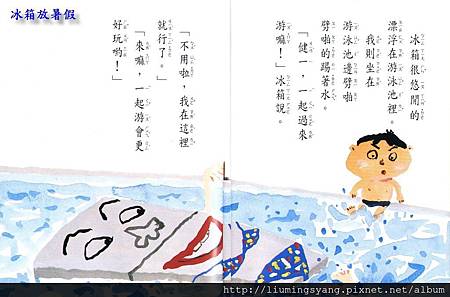 冰箱放暑假
冰箱很悠閒的
漂浮在游泳池裡。
我則坐在
游泳池邊劈啪
劈啪的踢著水。
「健一，一起過來
游嘛！」冰箱說。
「不用啦，我在這裡
就行了。」
「來嘛，一起游會更
好玩喲！」
http://liumingsyang.pixnet.net/album